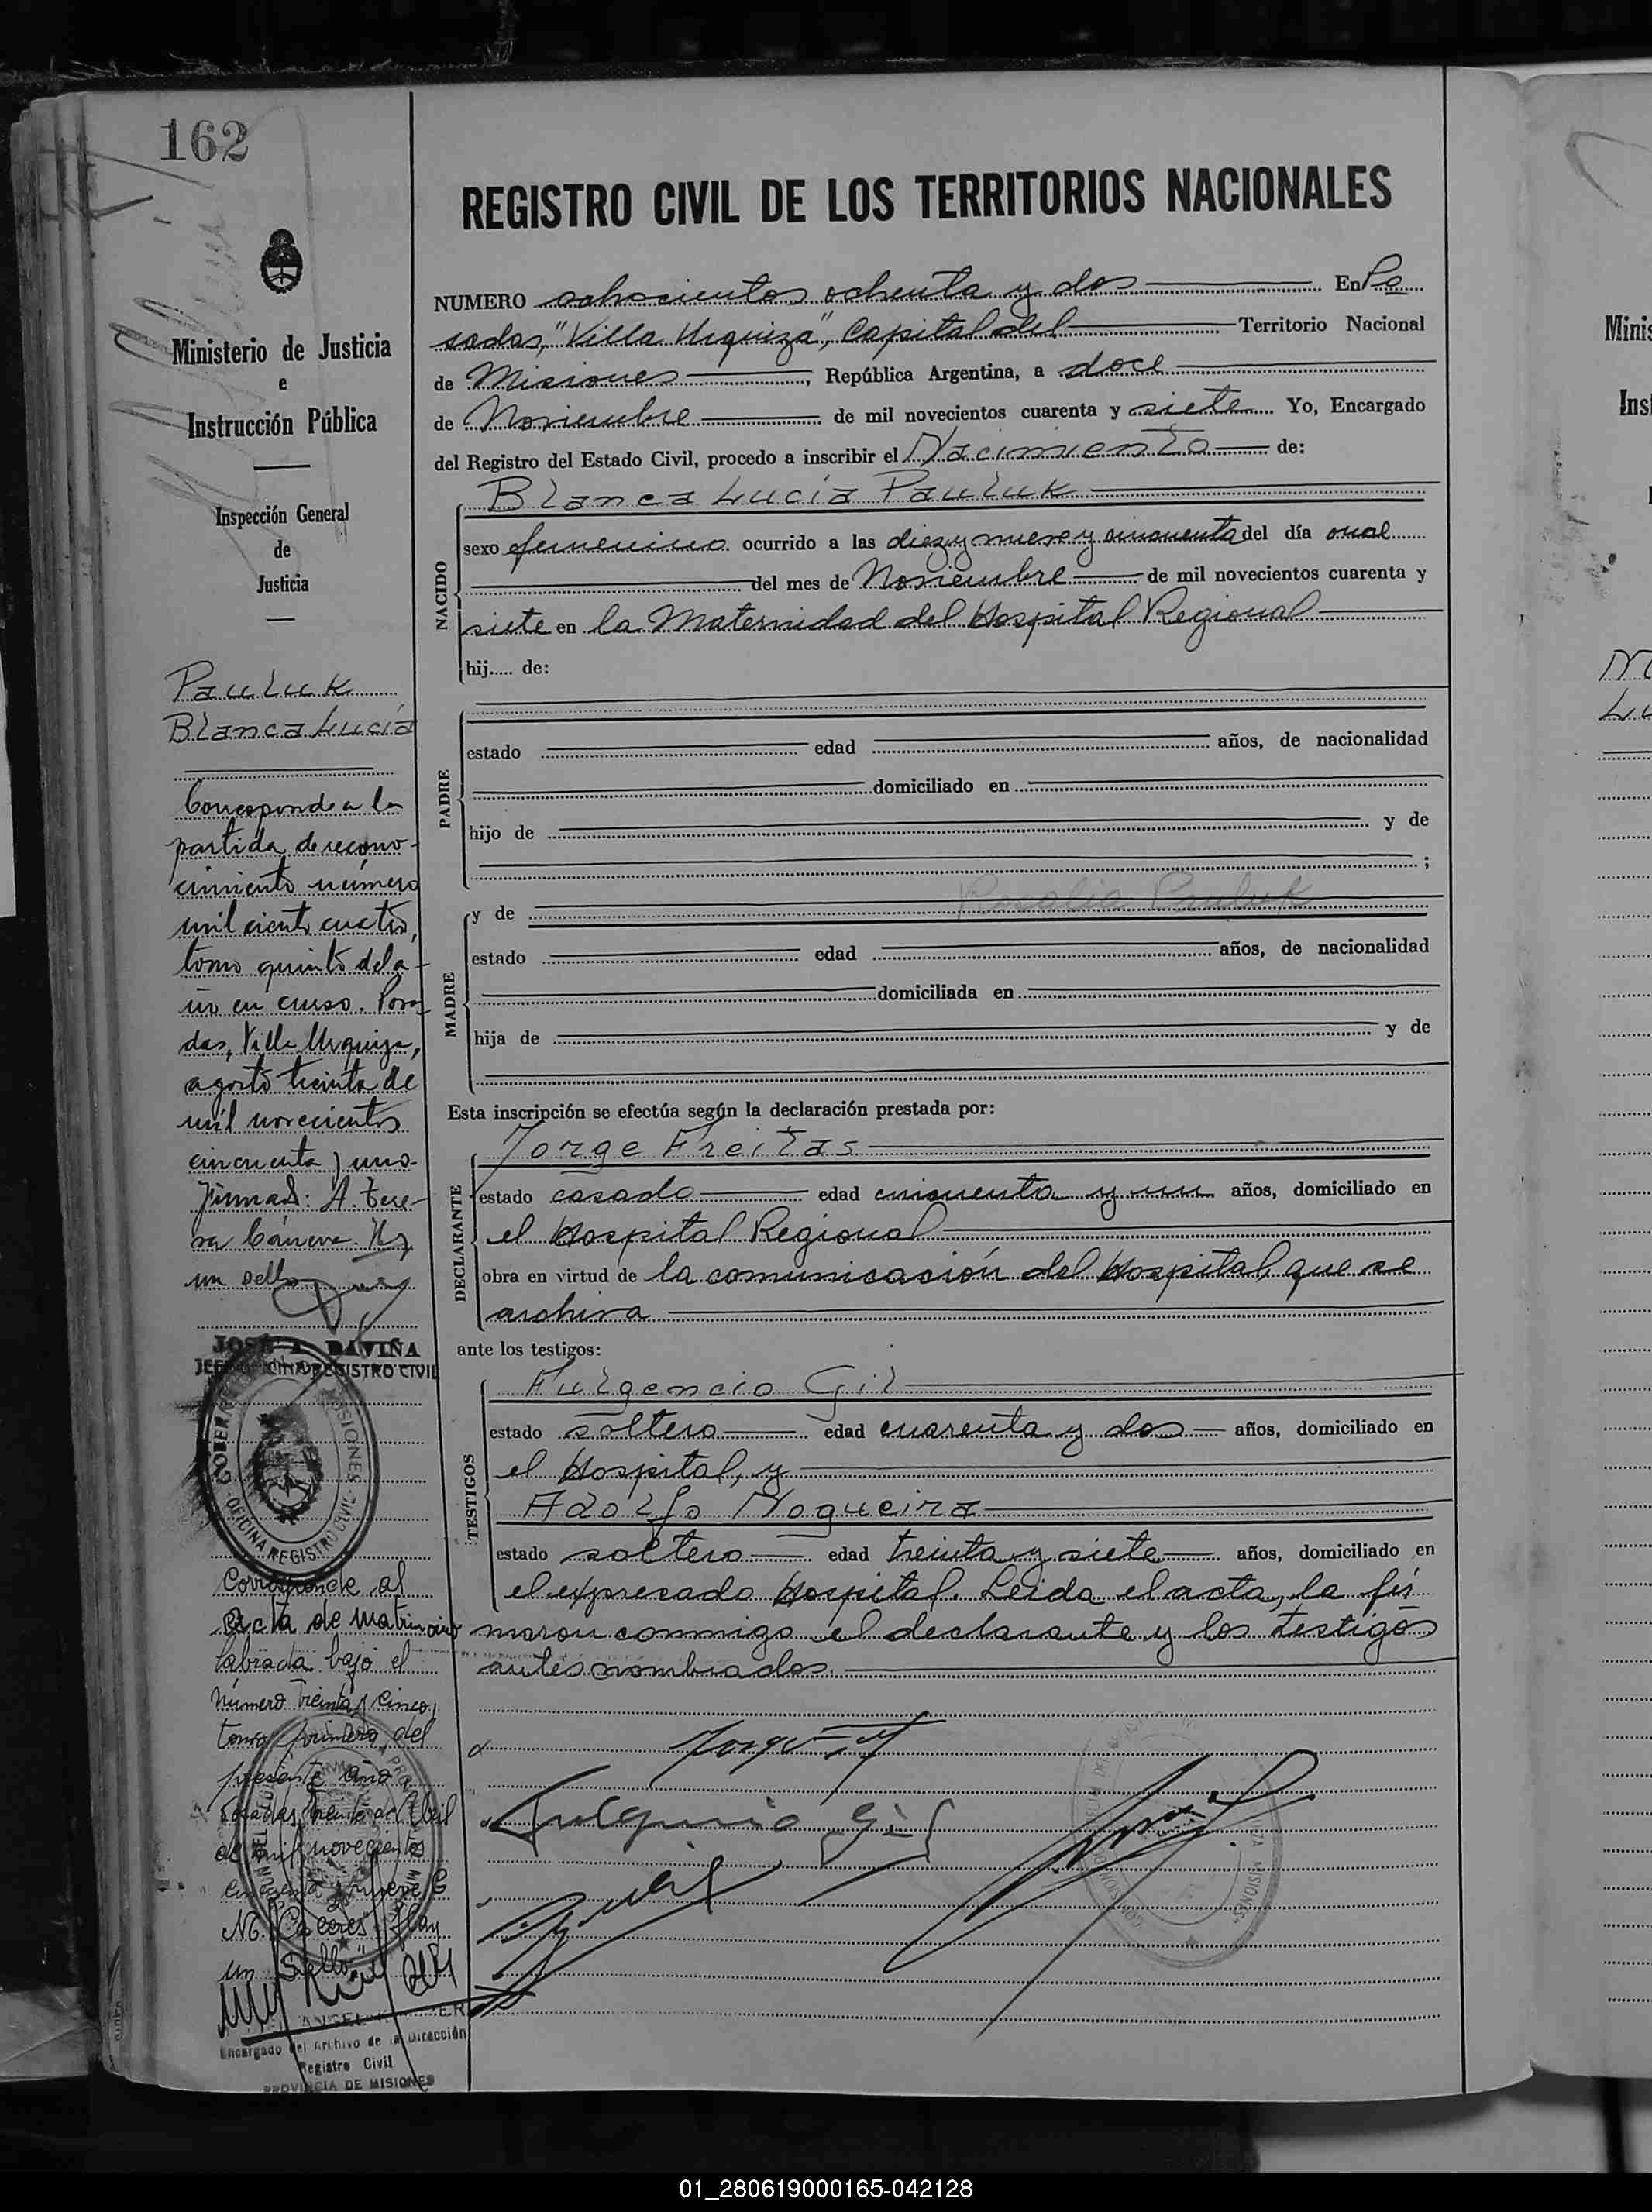 162
REGISTRO CIVIL DE LOS TERRITORIOS NACIONALES
Ministerio de Justicia
e
Instrucción Pública
Inspección General
de
Justicia
Pauluk
Blanca Lucía
Corresponde a la
partida de recono-
cimiento número
mil ciento cuatro,
tomo quinto del a-
ño en curso. Posa-
das, Villa Urquiza,
agosto treinta de
mil novecientos
cincuenta y uno.
Firmad: A. Tere-
sa Cáneva. Hay
un sello
JOSÉ DAVIÑA
JEFE OFICINA REGISTRO CIVIL
OFICINA REGISTRO CIVIL
MISIONES
Corresponde al
acta de matrimonio
labrada bajo el
número treinta y cinco,
tomo primero, del
presente año,
Posadas, veinte de Abril
de mil novecientos
cincuenta y nueve
Caceres Hay
un Sello
Encargado del Archivo de la Dirección
Registro Civil
PROVINCIA DE MISIONES
NUMERO ochocientos ochenta y dos En Po
sadas, "Villa Urquiza", Capital del Territorio Nacional
de Misiones, República Argentina, a doce
de Noviembre de mil novecientos cuarenta y siete Yo, Encargado
del Registro del Estado Civil, procedo a inscribir el Nacimiento de:
NACIDO
Blanca Lucía Pauluk
sexo femenino ocurrido a las diez y nueve y cincuenta del día once
del mes de Noviembre de mil novecientos cuarenta y
siete en la Maternidad del Hospital Regional
hij..... de:
PADRE
estado edad años, de nacionalidad
domiciliado en
hijo de y de
;
MADRE
Rosalia Pauluk
y de
estado edad años, de nacionalidad
domiciliada en
hija de y de
Esta inscripción se efectúa según la declaración prestada por:
DECLARANTE
Jorge Freitas
estado casado edad cincuenta y un años, domiciliado en
el Hospital Regional
obra en virtud de la comunicación del Hospital que se
archiva
ante los testigos:
TESTIGOS
Fulgencio Gil
estado soltero edad cuarenta y dos años, domiciliado en
el Hospital, y
Adolfo Nogueira
estado soltero edad treinta y siete años, domiciliado en
el expresado Hospital. Leida el acta, la fir
maron conmigo el declarante y los testigos
antes nombrados.
Fulgencio Gil
01_280619000165-042128